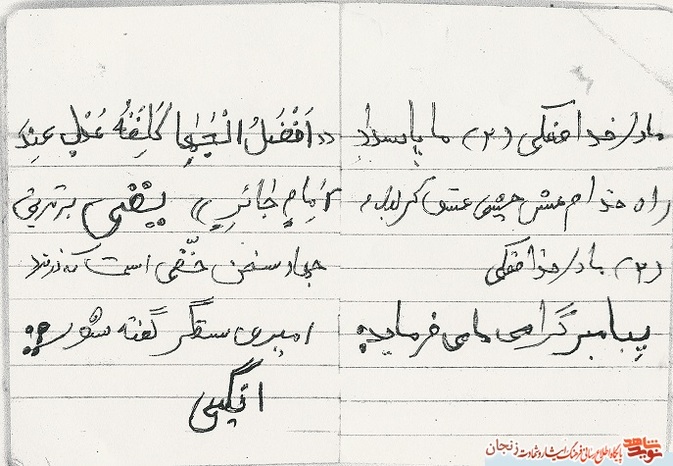 مادر خداحفظی (۲) ما پاسدار
راه خدا هستیم حسینی عشق کربلاء
(۲) مادر خداحفظی
پیامبر گرامی ما می فرماید:
«اَفْضَلُ الْجَهادِ کَلِمَةُ عَدْلٍ عِنْدَ
اِمامٍ جائرٍ» یعنی برترین
جهاد سخن حقی است که در نزد
امیری ستمگر گفته شود
پایگاه اطلاع رسانی فرهنگ ایثار و شهادت زنجان
نوید شاهد